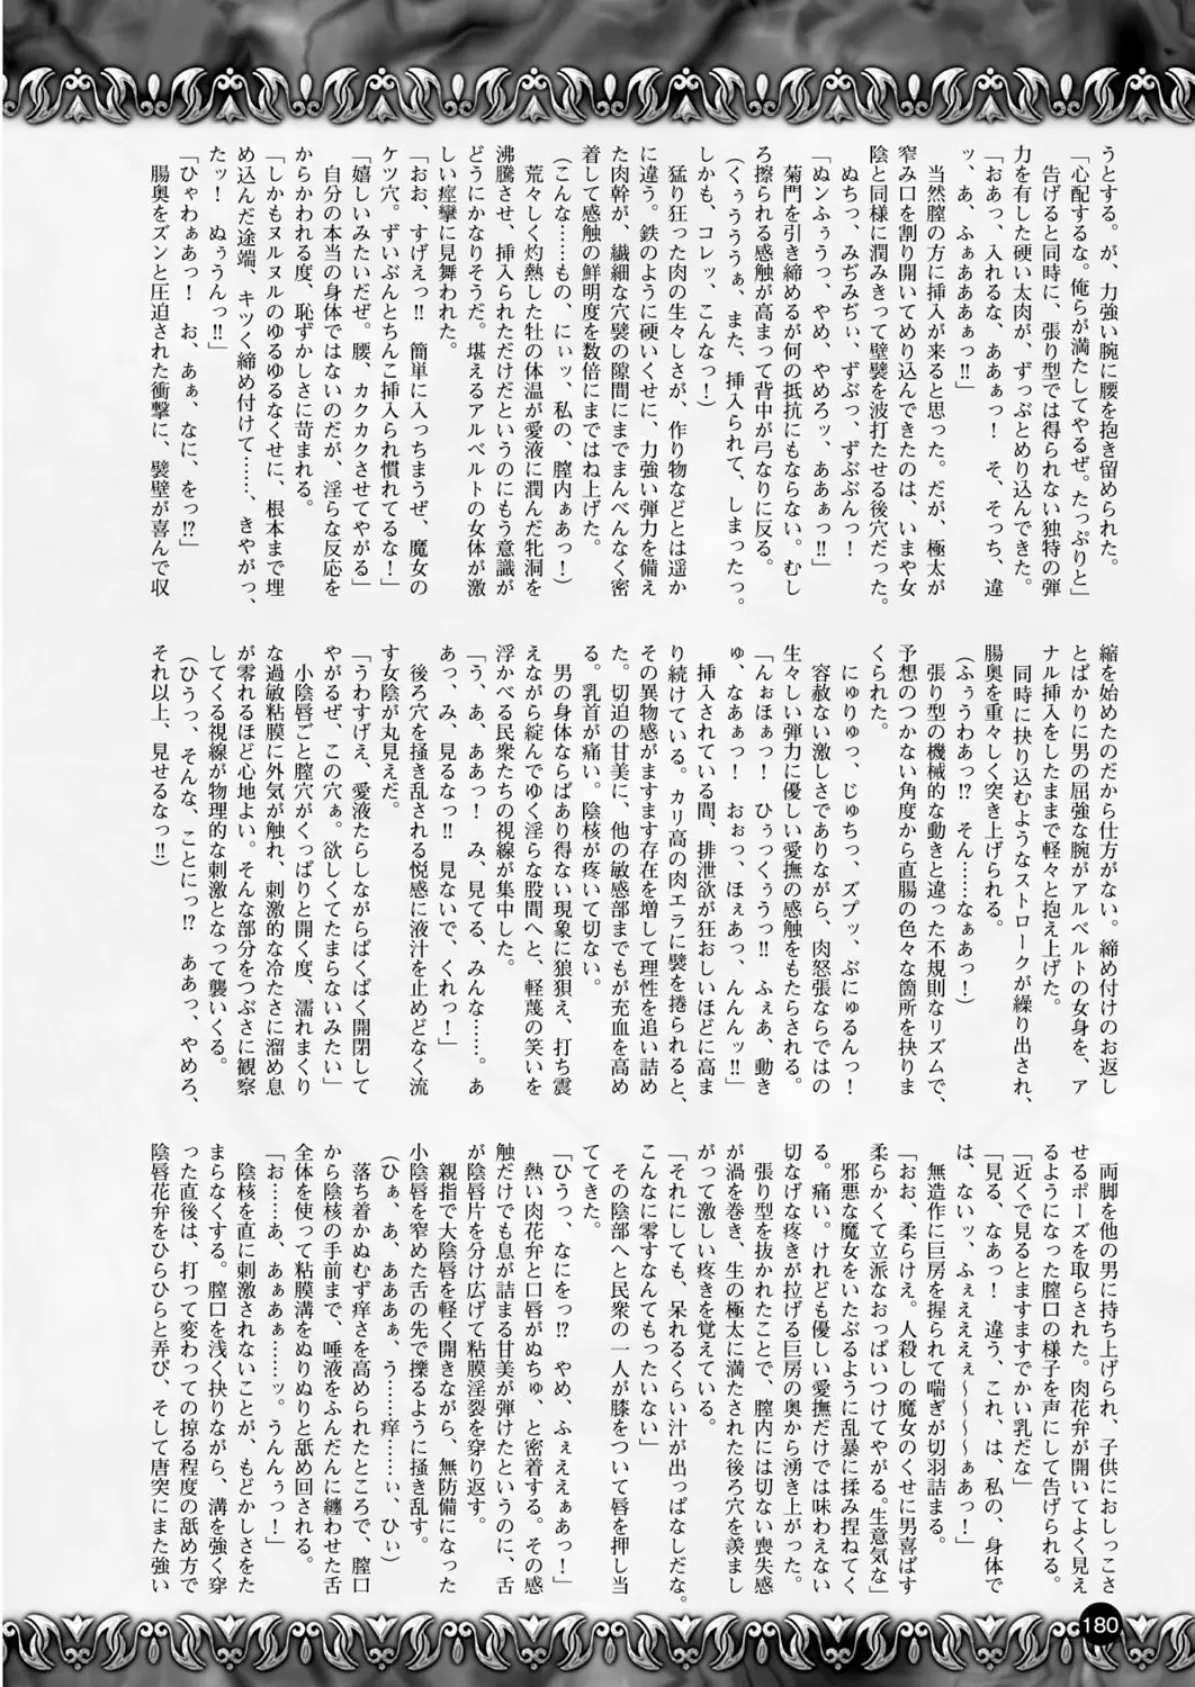 うとする。が、力強い腕に腰を抱き留められた。
「心配するな。俺らが満たしてやるぜ。たっぷりと」
告げると同時に、張り型では得られない独特の弾
力を有した硬い太肉が、ずっぷとめり込んできた。
「おあっ、入れるな、ああぁっ！　そ、そっち、違
ッ、あ、ふぁああああぁっ‼」
当然膣の方に挿入が来ると思った。だが、極太が
窄み口を割り開いてめり込んできたのは、いまや女
陰と同様に潤みきって壁襞を波打たせる後穴だった。
ぬちっ、みぢみぢぃ、ずぶっ、ずぶぶんっ！
「ぬンふぅうっ、やめ、やめろッ、ああぁっ‼」
菊門を引き締めるが何の抵抗にもならない。むし
ろ擦られる感触が高まって背中が弓なりに反る。
（くぅうううぁ、また、挿入られて、しまったっ。
しかも、コレッ、こんなっ！）
猛り狂った肉の生々しさが、作り物などとは遥か
に違う。鉄のように硬いくせに、力強い弾力を備え
た肉幹が、繊細な穴襞の隙間にまでまんべんなく密
着して感触の鮮明度を数倍にまではね上げた。
（こんな……もの、にぃッ、私の、膣内ぁあっ！）
荒々しく灼熱した牡の体温が愛液に潤んだ牝洞を
沸騰させ、挿入られただけだというのにもう意識が
どうにかなりそうだ。堪えるアルベルトの女体が激
しい痙攣に見舞われた。
「おお、すげえっ‼　簡単に入っちまうぜ、魔女の
ケツ穴。ずいぶんとちんこ挿入られ慣れてるな！」
「嬉しいみたいだぜ。腰、カクカクさせてやがる」
自分の本当の身体ではないのだが、淫らな反応を
からかわれる度、恥ずかしさに苛まれる。
「しかもヌルヌルのゆるゆるなくせに、根本まで埋
め込んだ途端、キツく締め付けて……、きやがっ、
たッ！　ぬぅうんっ‼」
「ひゃわぁあっ！　お、あぁ、なに、をっ⁉」
腸奥をズンと圧迫された衝撃に、襞壁が喜んで収
縮を始めたのだから仕方がない。締め付けのお返し
とばかりに男の屈強な腕がアルベルトの女身を、ア
ナル挿入をしたままで軽々と抱え上げた。
同時に抉り込むようなストロークが繰り出され、
腸奥を重々しく突き上げられる。
（ふぅうわあっ⁉　そん……なぁあっ！）
張り型の機械的な動きと違った不規則なリズムで、
予想のつかない角度から直腸の色々な箇所を抉りま
くられた。
にゅりゅっ、じゅちっ、ズプッ、ぶにゅるんっ！
容赦ない激しさでありながら、肉怒張ならではの
生々しい弾力に優しい愛撫の感触をもたらされる。
「んぉほぁっ！　ひぅっくぅうっ‼　ふぇあ、動き
ゅ、なあぁっ！　おぉっ、ほぇあっ、んんんッ‼」
挿入されている間、排泄欲が狂おしいほどに高ま
り続けている。カリ高の肉エラに襞を捲られると、
その異物感がますます存在を増して理性を追い詰め
た。切迫の甘美に、他の敏感部までもが充血を高め
る。乳首が痛い。陰核が疼いて切ない。
男の身体ならばあり得ない現象に狼狽え、打ち震
えながら綻んでゆく淫らな股間へと、軽蔑の笑いを
浮かべる民衆たちの視線が集中した。
「う、あ、ああっ！　み、見てる、みんな……。あ
あっ、み、見るなっ‼　見ないで、くれっ！」
後ろ穴を掻き乱される悦感に液汁を止めどなく流
す女陰が丸見えだ。
「うわすげえ、愛液たらしながらぱくぱく開閉して
やがるぜ、この穴ぁ。欲しくてたまらないみたい」
小陰唇ごと膣穴がくっぱりと開く度、濡れまくり
な過敏粘膜に外気が触れ、刺激的な冷たさに溜め息
が零れるほど心地よい。そんな部分をつぶさに観察
してくる視線が物理的な刺激となって襲いくる。
（ひうっ、そんな、ことにっ⁉　ああっ、やめろ、
それ以上、見せるなっ‼）
両脚を他の男に持ち上げられ、子供におしっこさ
せるポーズを取らされた。肉花弁が開いてよく見え
るようになった膣口の様子を声にして告げられる。
「近くで見るとますますでかい乳だな」
「見る、なあっ！　違う、これ、は、私の、身体で
は、ないッ、ふぇえええぇ～～～～ぁあっ！」
無造作に巨房を握られて喘ぎが切羽詰まる。
「おお、柔らけえ。人殺しの魔女のくせに男喜ばす
柔らかくて立派なおっぱいつけてやがる。生意気な」
邪悪な魔女をいたぶるように乱暴に揉み捏ねてく
る。痛い。けれども優しい愛撫だけでは味わえない
切なげな疼きが拉げる巨房の奥から湧き上がった。
張り型を抜かれたことで、膣内には切ない喪失感
が渦を巻き、生の極太に満たされた後ろ穴を羨まし
がって激しい疼きを覚えている。
「それにしても、呆れるくらい汁が出っぱなしだな。
こんなに零すなんてもったいない」
その陰部へと民衆の一人が膝をついて唇を押し当
ててきた。
「ひうっ、なにをっ⁉　やめ、ふぇええぁあっ！」
熱い肉花弁と口唇がぬちゅ、と密着する。その感
触だけでも息が詰まる甘美が弾けたというのに、舌
が陰唇片を分け広げて粘膜淫裂を穿り返す。
親指で大陰唇を軽く開きながら、無防備になった
小陰唇を窄めた舌の先で擽るように掻き乱す。
（ひぁ、あ、あああぁ、う……痒……ぃ、ひぃ）
落ち着かぬむず痒さを高められたところで、膣口
から陰核の手前まで、唾液をふんだんに纏わせた舌
全体を使って粘膜溝をぬりぬりと舐め回される。
「お……あ、あぁあぁ……ッ。うんんぅっ！」
陰核を直に刺激されないことが、もどかしさをた
まらなくする。膣口を浅く抉りながら、溝を強く穿
った直後は、打って変わっての掠る程度の舐め方で
陰唇花弁をひらひらと弄び、そして唐突にまた強い
180